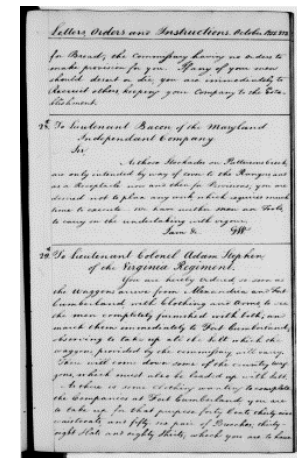 Letters Orders and Instructions October 1755.
for Bread; the Commissary having no orders to
make provision for you. If any of your men
should desert or die, you are immediately to
Recruit others keeping your Company to the Esta-
blishment.
To Lieutenant Bacon of the Maryland
Independant Company.
Sir,
As those Stockades on Pattersons Creek,
are only intended by way of to the Rangers and
as a Receptacle now and then for Provisions, you are
desired not to plan any work which requires much
time to execute. We have neither men nor Tools,
to carry on the undertaking with vigour.
I am &c. GW
To Lieutenant Colonel Adam Stephen
of the Virginia Regiment.
You are hereby ordered so soon as
the Waggons arrive from Alexandria and Fort
Cumberland with Clothing and Arms, to see
the men completely furnished with both, and
march them immediately to Fort Cumberland;
observing to take up all the salt which the
waggons provided by the commissary will carry.
There will come down some of the country wag-
gons, which must also be loaded up with salt.
As there is some clothing wanting to complete
the Companies at Fort Cumberland, you are
to take up for that purpose forty Coats, thirty nine
waistcoats, and fifty six pair of Breeches, thirty-
eight Hats and eighty Shirts, which you are to have